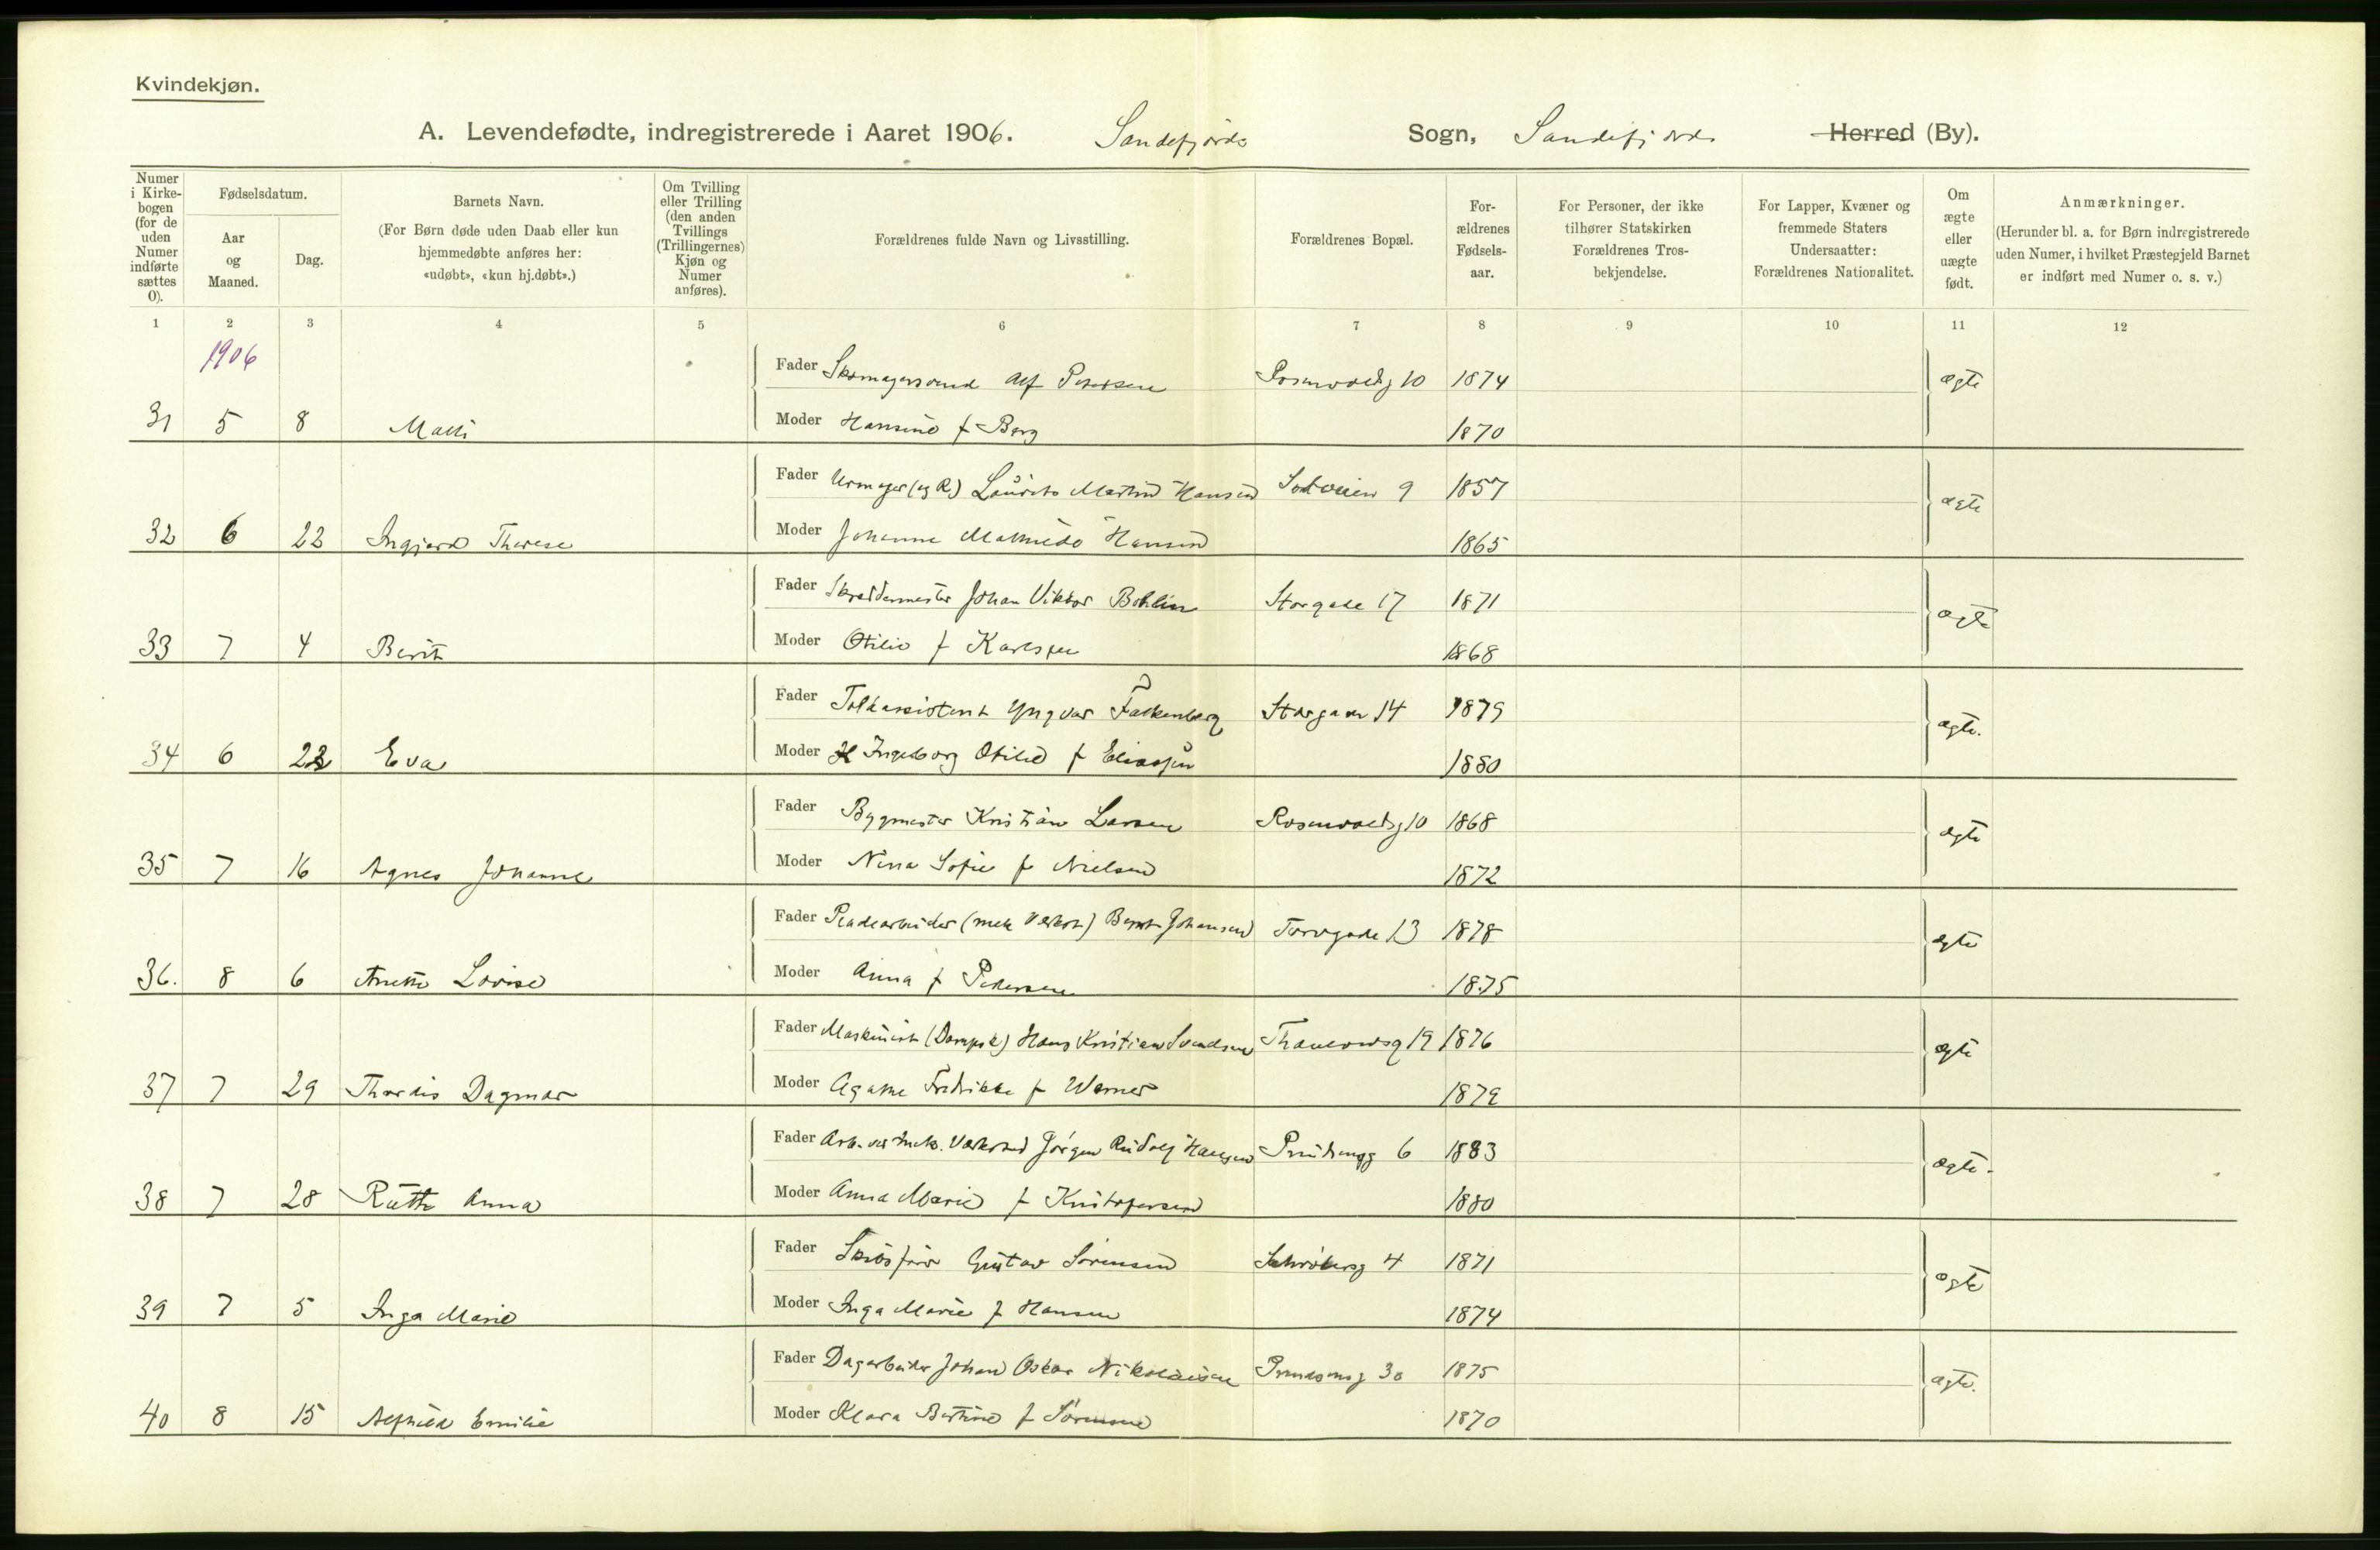 Kvindekjøn.
A. Levendefødte, indregistrerede i Aaret 1906. Sandefjords Sogn, Sandefjords Herred (By).
Numer i Kirkebogen (for de uden Numer indførte sættes 0).
Fødselsdatum.
Aar og Maaned.
Dag.
Barnets Navn.
(For Børn døde uden Daab eller kun hjemmedøbte anføres her: «udøbt», «kun hj.døbt».)
Om Tvilling eller Trilling (den anden Tvillings (Trillingernes) Kjøn og Numer anføres).
Forældrenes fulde Navn og Livsstilling.
Forældrenes Bopæl.
Forældrenes Fødselsaar.
For Personer, der ikke tilhører Statskirken Forældrenes Trosbekjendelse.
For Lapper, Kvæner og fremmede Staters Undersaatter: Forældrenes Nationalitet.
Om ægte eller uægte født.
Anmærkninger.
(Herunder bl. a. for Børn indregistrerede uden Numer, i hvilket Præstegjeld Barnet er indført med Numer o. s. v.)
1 2 3 4 5 6 7 8 9 10 11 12
1906
Fader Skomagersvend Alf 10 1874 ægte
31 5 8 Moder f Berg 1870
Fader Urmager Laurits Martin Hansen 9 1857 ægte
32 6 22 Ingjerd Therese Moder Johanne Hansen 1865
Fader Skræddermester Johan Viktor Bohlin Storgade 17 1871 ægte
33 7 4 Berit Moder Otilie f Karlsen 1868
Fader Toldassistent Yngvar Falkenberg Storgaden 14 1879 ægte.
34 6 22 Eva Moder Ingeborg Otilie f Eliassen 1880
Fader Bygmester Kristian Larsen Rosenvoldsg 10 1868 ægte
35 7 16 Agnes Johanne Moder Nina Sofie f Nielsen 1872
Fader Pladearbeider (mek Værkst) Bernt Johansen Torvgade 13 1878 ægte
36. 8 6 Anette Lovise Moder Anna f Pedersen 1875
Fader Maskinist (Dampsk) Hans Kristian Svendsen 19 1876 ægte
37 7 29 Thordis Dagmar Moder Agathe Fredrikke f Werner 1879
Fader Arb. ved mek. Værksted Jørgen Rudolf Hansen 6 1883 ægte.
38 7 28 Ruth Anna Moder Anna Marie f Kristofersen 1880
Fader Gustav Sørensen 4 1871 ægte
39 7 5 Inga Marie Moder Inga Marie f Hansen 1874
Fader Dagarbeider Johan Oskar Nikolaisen 30 1875 ægte.
40 8 15 Alfhild Emilie Moder Klara Bertine f Sørensen 1870